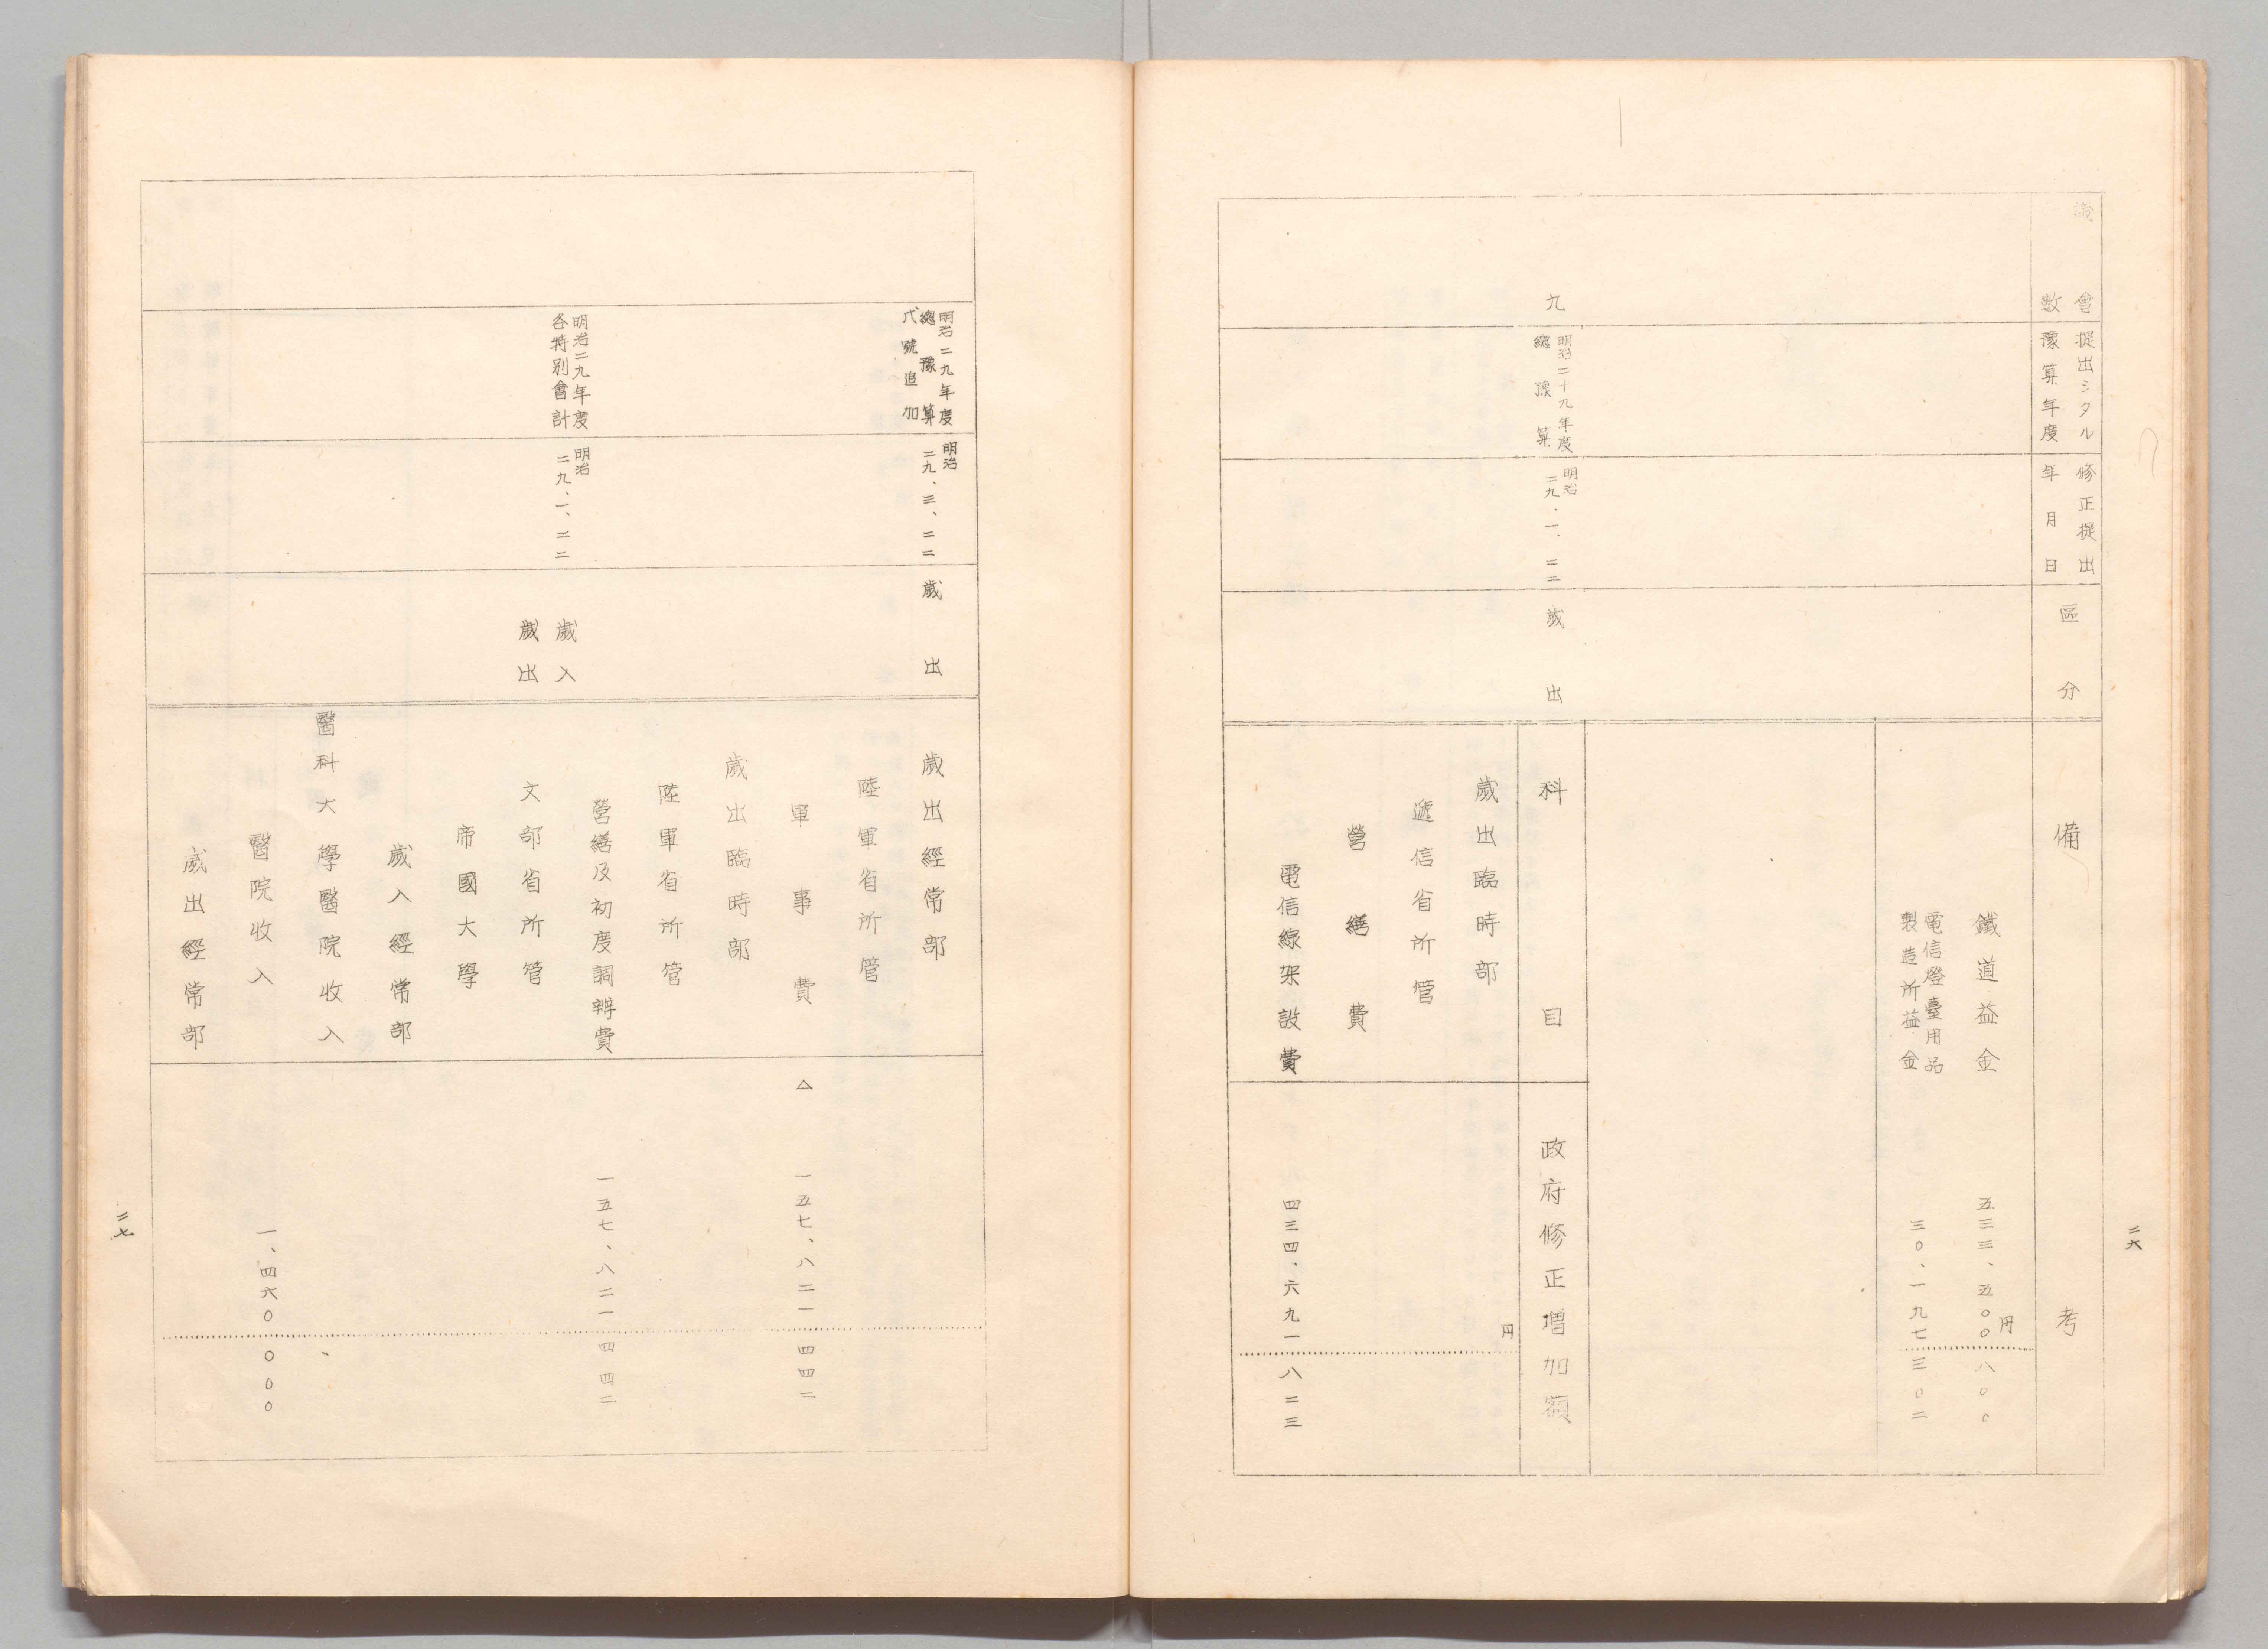 二六
議會
數
提出シタル
豫算年度
修正提出
年月日
區分
備考
鐵道益金
五三三、五〇〇円八〇〇
電信燈臺用品
製造所益金
三〇、一九七三〇二
九
明治二十九年度
總豫算
明治
二九、一、二二
歲出
科目
政府修正增加額
円
歲出臨時部
遞信省所管
營繕費
電信線架設費
四三四、六九一八二三
明治二九年度
總豫算
弋號追加
明治
二九、三、二二
歲出
歲出經常部
陸軍省所管
軍事費
△一五七、八二一四四二
歲出臨時部
陸軍省所管
營繕及初度調辨費
一五七、八二一四四二
明治二九年度
各特別會計
明治
二九、一、二二
歲入
歲出
文部省所管
帝國大學
歲入經常部
醫科大學醫院收入
醫院收入
一、四六〇〇〇〇
歲出經常部
二七